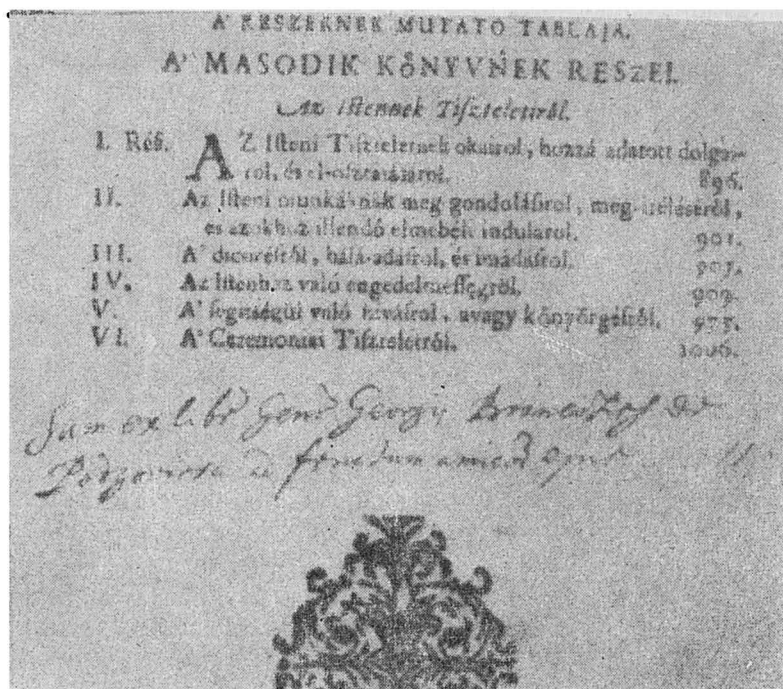 A' RESZEKNEK MUTATO TABLAJA.
A' MASODIK KÖNYVNEK RESZEI.
Az istennek Tiszteletiröl.
I. Rész. AZ Isteni Tiszteletnek okairol, hozzá adatott dolgai-
rol, és el-osztásárol. 896.
II. Az Isteni munkáknak meg gondolásirol, meg-itéléséröl,
és azokhoz illendö elmebéli indularol. 901.
III. A' dicsérésröl, hálá-adásrol, és imádásrol. 907.
IV. Az Istenhez való engedelmességröl. 909.
V. A' segitségül való hivásrol, avagy könyörgésröl. 975.
VI. A' Ceremoniai Tiszteletröl. 1006.
Sum ex lib Georgy de